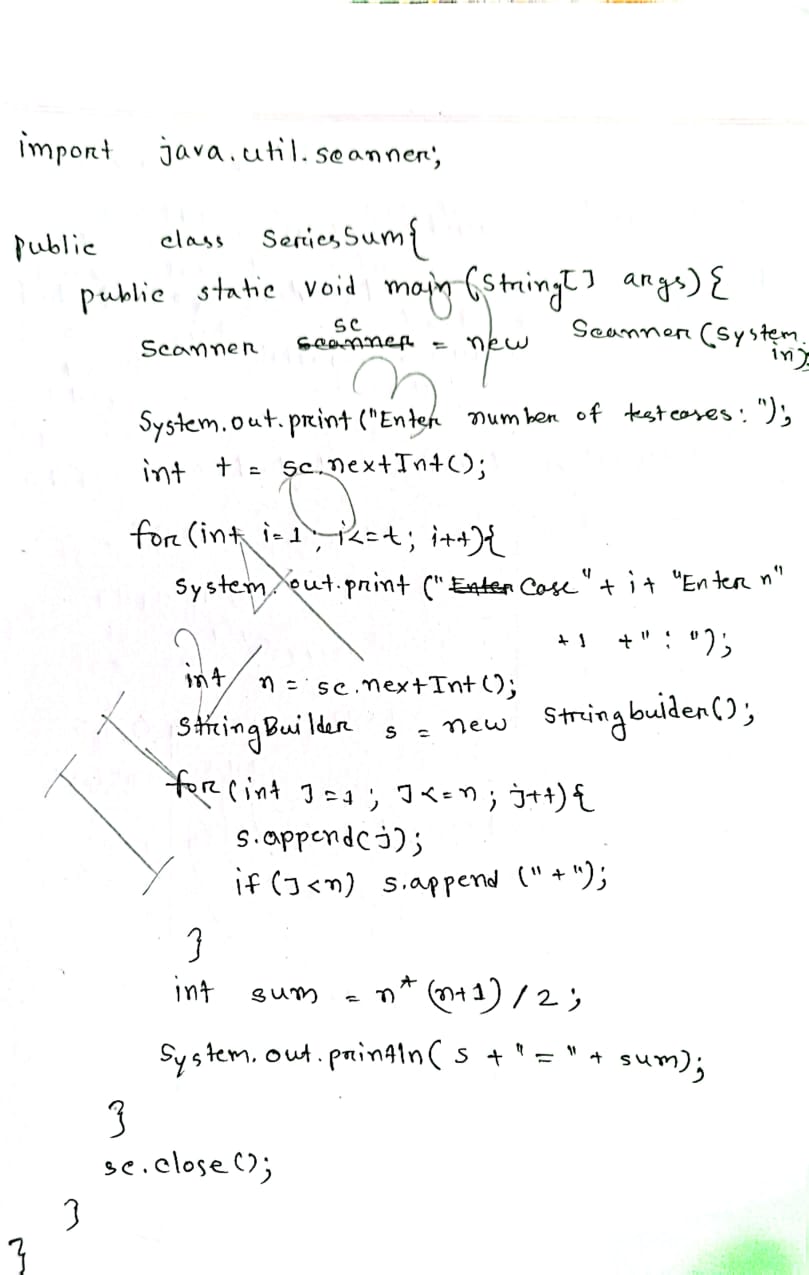 import java.util.scanner;
public class SeriesSum{
public static void main (String[] args) {
Scanner sc = new Scanner (System.in);
System.out.print ("Enter number of testcases: ");
int t = sc.nextInt();
for (int i=1; i<=t; i++){
System.out.print (" Case" + i + "Enter n"
+1 +" : ");
int n = sc.nextInt();
StringBuilder s = new Stringbuider();
for (int J=1; J<=n; j++) {
s.append(j);
if (J<n) s.append ("+");
}
int sum = n* (n+1) /2;
System.out.println( s + " = " + sum);
}
sc.close();
}
}